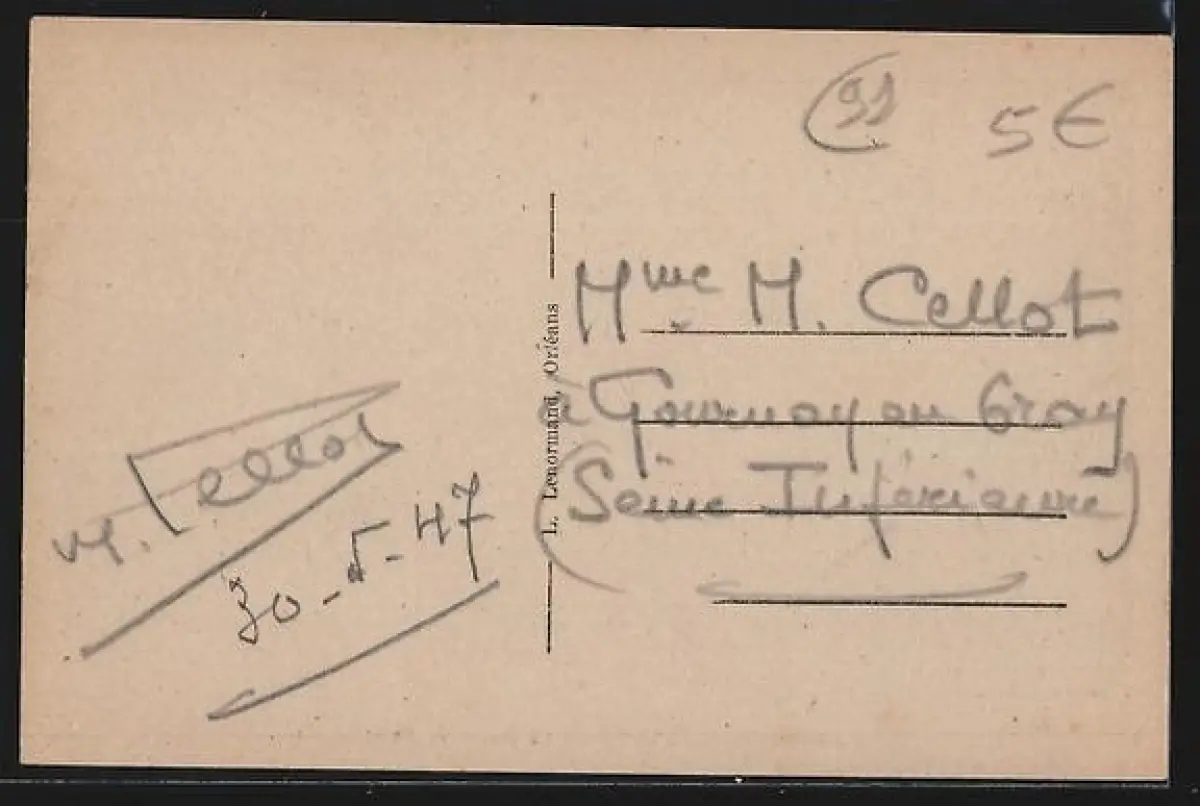 91 5€
M. Cellot
30-5-47
L. Lenormand, Orléans
Mme M. Cellot
à Gournay en Bray
(Seine Inférieure)